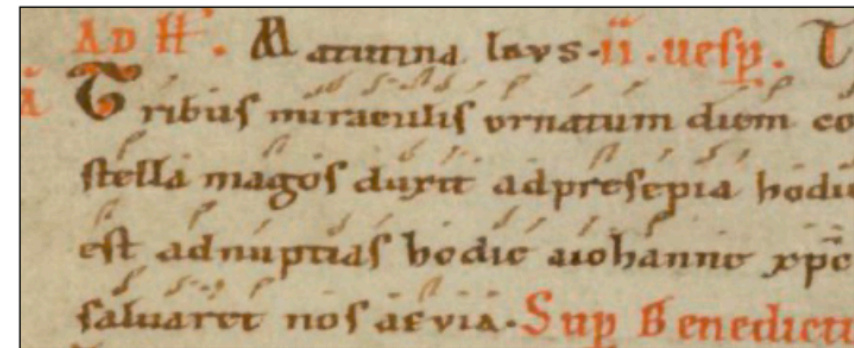 AD H̄. Matutina laus. ii. uesp̄. T
A Tribus miraculis ornatum diem co
stella magos duxit ad presepia hodie
est ad nuptias hodie a iohanne xp̄c
saluaret nos aeuia. Sup Benedictu